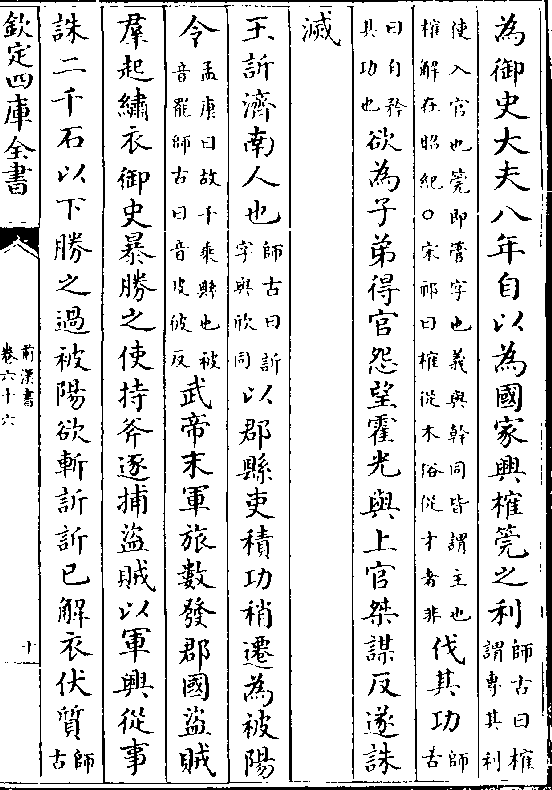 為御史大夫八年自以為國家興榷筦之利師古曰榷謂專其利
使入官也筦即管字也義與幹同皆謂主也榷解在昭紀○宋祁曰榷從木俗從才者非伐其功師古
曰自矜其功也欲為子弟得官怨望霍光與上官桀謀反遂誅
滅
王訢濟南人也師古曰訢字與欣同以郡縣吏積功稍遷為被陽
令孟康曰故千乘縣也被音罷師古曰音皮彼反武帝末軍旅數發郡國盜賊
羣起繡衣御史暴勝之使持斧逐捕盜賊以軍興從事
誅二千石以下勝之過被陽欲斬訢訢已解衣伏質師古
欽定四庫全書
前漢書
卷六十六
十